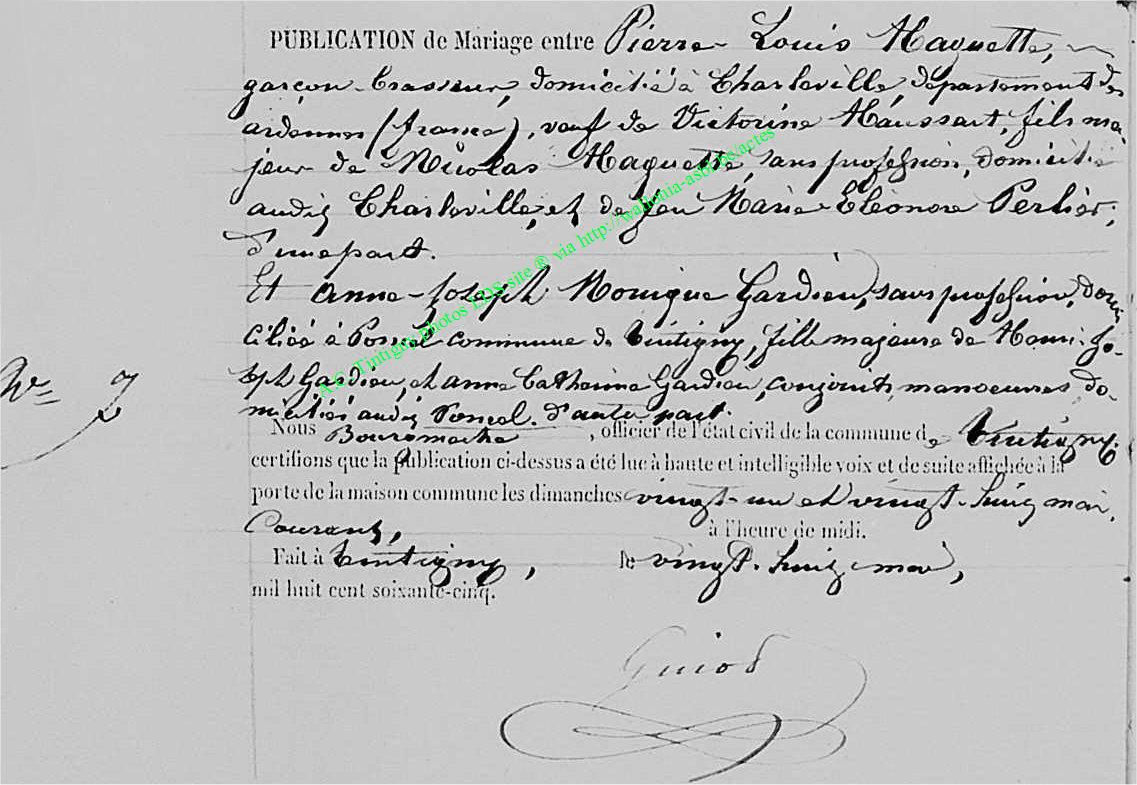 PUBLICATION de Mariage entre Pierre-Louis Haquette,
garçon brasseur, domicilié à Charleville, département des
ardennes (france), veuf de Victorine Haussart, fils ma-
jeur de Nicolas Haquette, sans profession, domicilié
audit Charleville, et de feu Marie-Eléonore Perlier,
d'une part.
Et anne-Joseph Monique Gardien, sans profession, domi
ciliée à Poncel commune de Tintigny, fille majeure de Henri-Jo-
seph Gardien, et anne Catherine Gardien, conjoints, manoeuvres do-
N° 7
miciliés audit Poncel. d'autre part.
Nous Bourgmestre, officier de l'état civil de la commune de Tintigny.
certifions que la publication ci-dessus a été lue à haute et intelligible voix et de suite affichée à la
porte de la maison commune les dimanches vingt-un et vingt-huit mai,
Courant, à l'heure de midi.
Fait à Tintigny, le vingt-huit mai,
mil huit cent soixante-cinq.
Guiot
A.C. Tintigny photos LDS site ® via http://wallonia-asbl.be/actes